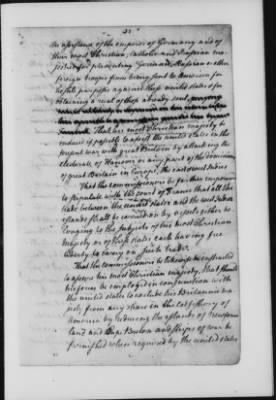 the assistance of the emperor of Germany and of
their most Christian, Catholic and Prussian ma-
jesties for preventing German, Russian or other
foreign troops from being sent to America for
hostile purposes against these united states & for
obtaining a recal of those already sent,
That his most Christian majesty be
induced if possible to assist the united states in the
present war with great Britain by attacking the
electorate of Hanover or any part of the dominions
of great Britain in Europe, the east or west Indies
That the commissioners be farther empowered
to stipulate with the court of France that all the
trade between the united states and the west India
islands shall be carried on by vessels either be-
longing to the subjects of his most Christian
majesty or of these states each having free
liberty to carry on such trade.
That the commissioners be likewise instructed
to assure his most Christian majesty, that should
his forces be employed in conjunction with
the united states to exclude his Britannic ma-
jesty from any share in the cod fishery of
America by reducing the islands of Newfound
land and Cape Breton and ships of war be
furnished when required by the united states